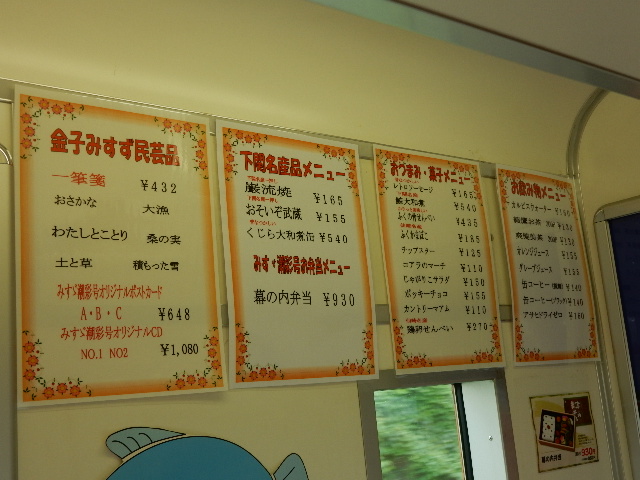 金子みすず民芸品
一筆箋 ¥432
おさかな 大漁
わたしとことり 桑の実
土と草 積もった雪
みすゞ潮彩号オリジナルポストカード
A・B・C ¥648
みすゞ潮彩号オリジナルCD
NO.1 NO2 ¥1,080
下関名産品メニュー
巌流焼 ¥165
おそいぞ武蔵 ¥155
くじら大和煮缶 ¥540
みすゞ潮彩号お弁当メニュー
幕の内弁当 ¥930
おつまみ・菓子メニュー
¥165
鯨大和煮 ¥540
¥435
ふくかまぼこ ¥185
チップスター ¥125
コアラのマーチ ¥110
じゃがりこサラダ ¥150
ポッキーチョコ ¥155
カントリーマアム ¥110
せんべい ¥270
お飲み物メニュー
カルピスウォーター ¥150
オレンジジュース ¥155
グレープジュース ¥155
缶コーヒー ¥140
缶コーヒー ¥140
アサヒドライゼロ ¥160
幕の内弁当 930円